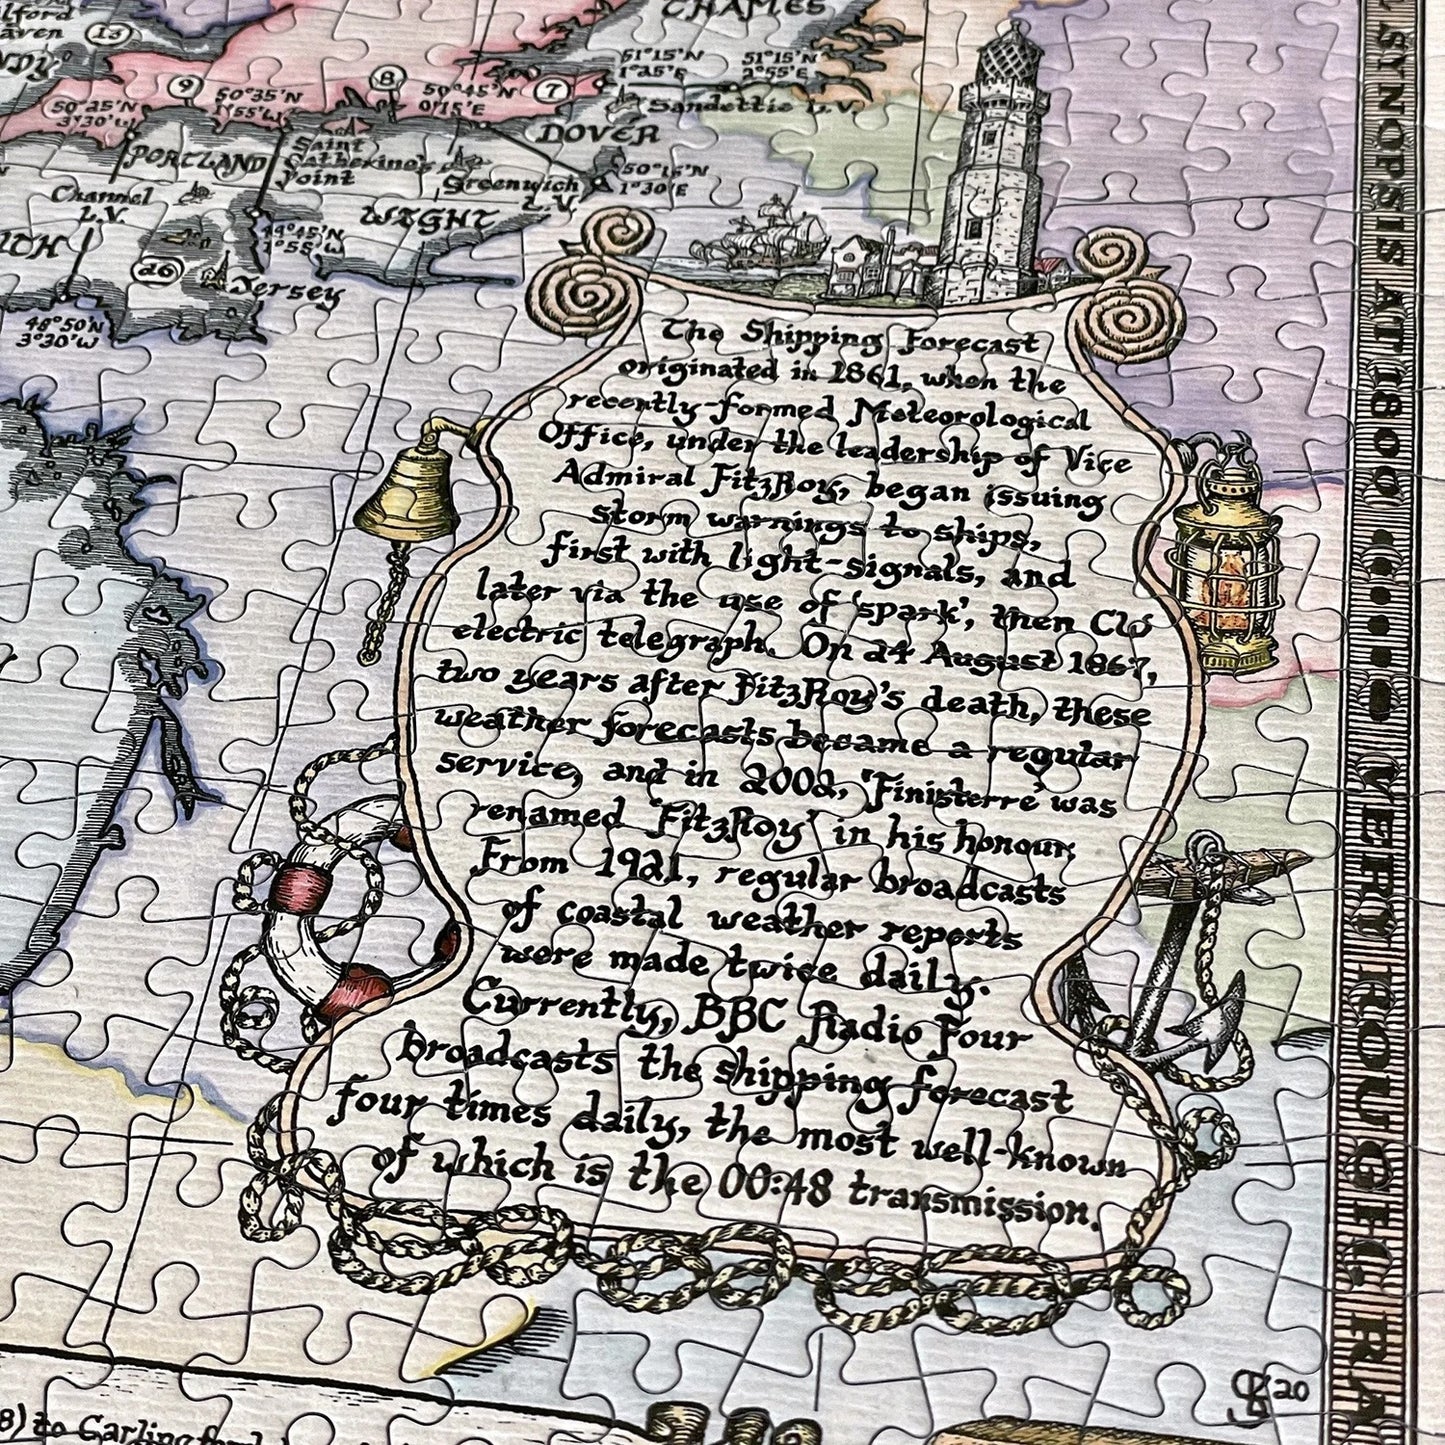 THAMES
13
51°15'N
1°25'E
51°15'N
2°55'E
9
8
7
50°25'N
3°30'W
50°35'N
1°55'W
50°45'N
0°15'E
Sandettie L.V.
DOVER
PORTLAND
Saint
Catherine's
Point
Greenwich
L.V.
50°15'N
1°30'E
Channel
L.V.
WIGHT
49°45'N
1°55'W
26
Jersey
48°50'N
3°30'W
The Shipping Forecast
originated in 1861, when the
recently-formed Meteorological
Office, under the leadership of Vice
Admiral FitzRoy, began issuing
storm warnings to ships,
first with light-signals, and
later via the use of 'spark', then
electric telegraph. On 24 August 1867,
two years after FitzRoy's death, these
weather forecasts became a regular
service, and in 2002, 'Finisterre' was
renamed 'FitzRoy' in his honour.
From 1921, regular broadcasts
of coastal weather reports
were made twice daily.
Currently, BBC Radio Four
broadcasts the shipping forecast
four times daily, the most well-known
of which is the 00:48 transmission.
SYNOPSIS AT 1800 • • • • • VERY ROUGH. RA
20
8) to Carlingford